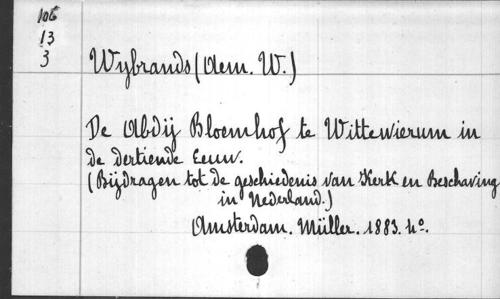 106
13
3
Wybrands (Aem. W.)
De Abdij Bloemhof te Wittewierum in
de dertiende Eeuw.
(Bijdragen tot de geschiedenis van Kerk en Beschaving
in Nederland.)
Amsterdam. Müller. 1883. 4o.